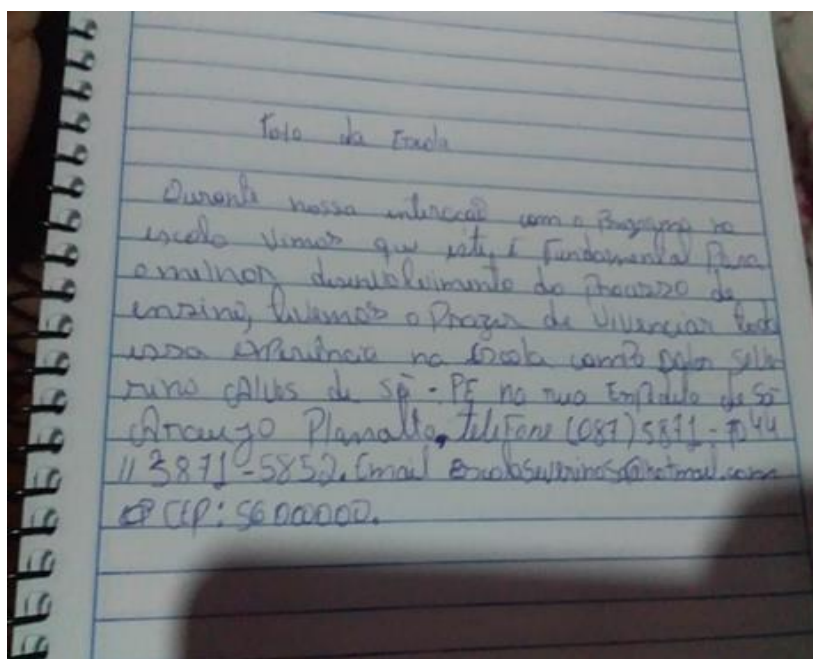 da Escola
Durante nossa interacção com o Programa na
escola vimos que este, é Fundamental Para
o melhor desenvolvimento do Processo de
ensino, tivemos o Prazer de Vivenciar toda
essa experiência na Escola
rino Alves de Sá - PE na rua Enpidio de Sá
Araujo Planalto, telefone (087) 3871-7044
// 3871-5852. Email escolaseverinos@hotmail.com
CEP: 56000000.